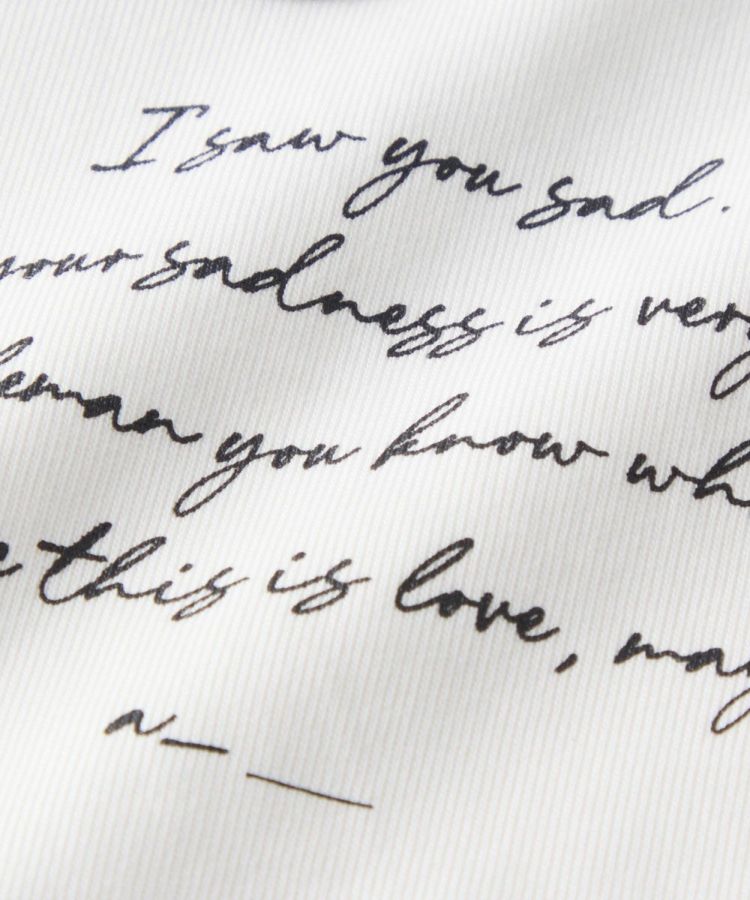 I saw you sad.
your sadness is very
you know
this is love,
a— —